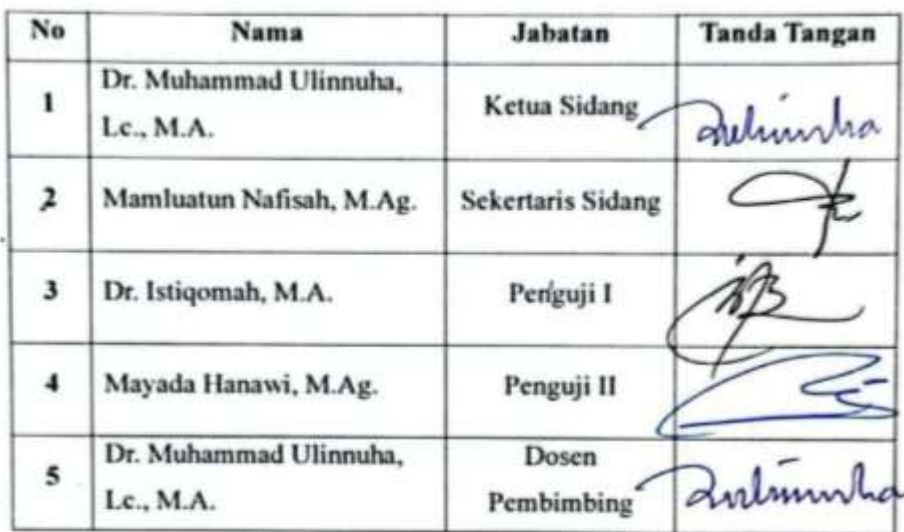 No Nama Jabatan Tanda Tangan
1 Dr. Muhammad Ulinnuha, Lc., M.A. Ketua Sidang
2 Mamluatun Nafisah, M.Ag. Sekertaris Sidang
3 Dr. Istiqomah, M.A. Penguji I
4 Mayada Hanawi, M.Ag. Penguji II
5 Dr. Muhammad Ulinnuha, Lc., M.A. Dosen Pembimbing